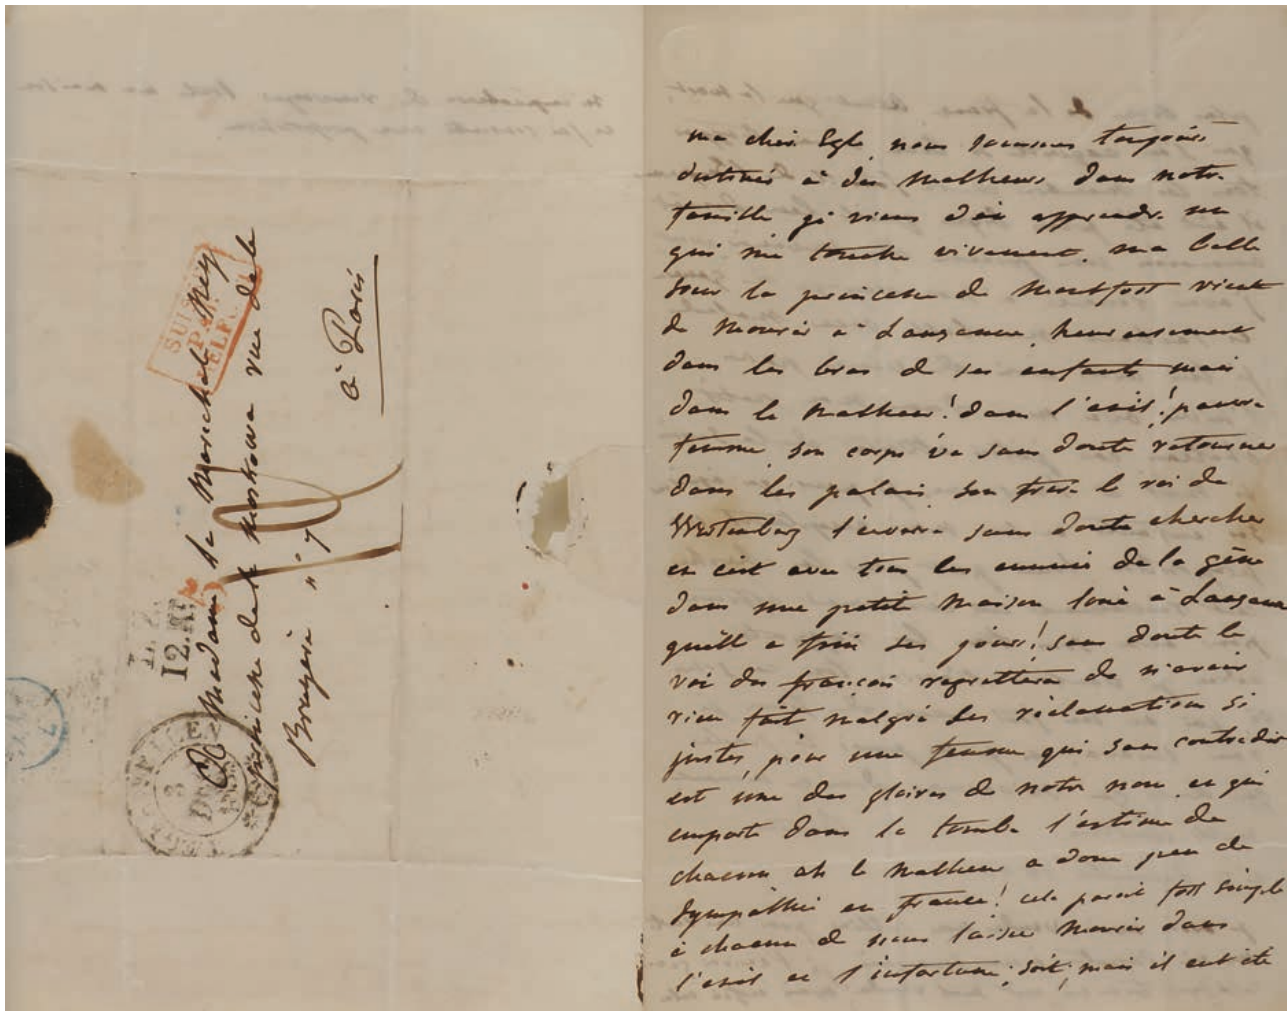 Madame la Marechale Ney
princesse de la Moskowa rue de la
Bruyere n° 7
à Paris
SUISSE
PAR
BELFORT
L.Z.
12.K.
DEC
ma chere Egle, nous sommes toujours
destinés à des malheurs dans notre
famille je viens d'en apprendre un
qui me touche vivement. ma belle
soeur la princesse de Montfort vient
de mourir à Lausanne, heureusement
dans les bras de ses enfants mais
dans le malheur! dans l'exil! pauvre
femme, son corps va sans doute retourner
dans les palais son frere le roi de
Wurtemberg l'enverra sans doute chercher
et c'est avec tous les ennuis de la gêne
dans une petite maison loué à Lausanne
quelle a fini ses jours! sans doute le
roi des français regrettera de n'avoir
rien fait malgré des réclamations si
justes, pour une femme qui sans contredit
est une des gloires de notre nom et qui
emporte dans la tombe l'estime de
chacun ah le malheur a donc peu de
sympathie en france! cela parait fort simple
à chacun de nous laisser mourir dans
l'exil et l'infortune, soit, mais il eut été